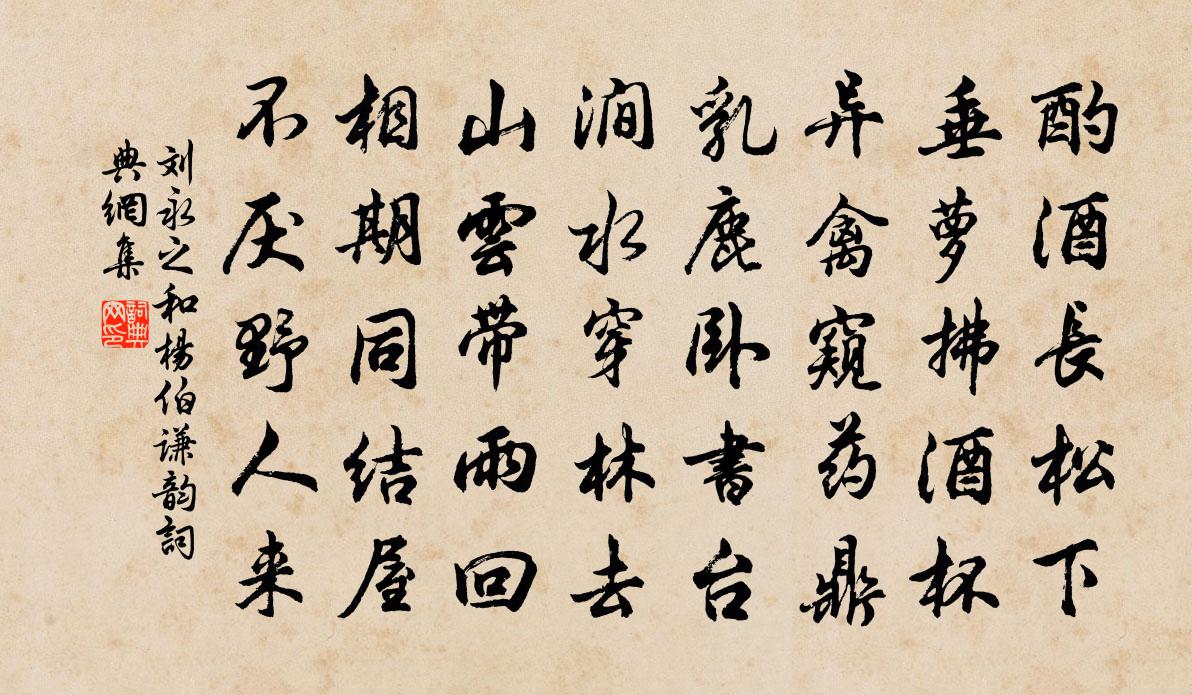 酌酒長松下
垂萝拂酒杯
异禽窺药鼎
乳鹿卧書台
澗水穿林去
山雲带雨回
相期同结屋
不厌野人来
刘永之和楊伯谦韵詞
典網集
詞典
网印